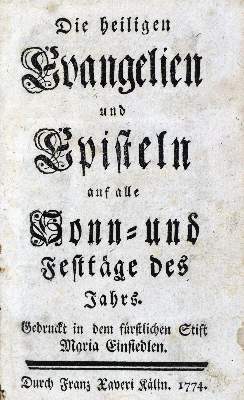 Die heiligen
Evangelien
und
Episteln
auf alle
Sonn- und
Festtäge des
Jahrs.
Gedruckt in dem fürstlichen Stift
Maria Einsiedlen.
Durch Franz Xaveri Kälin. 1774.